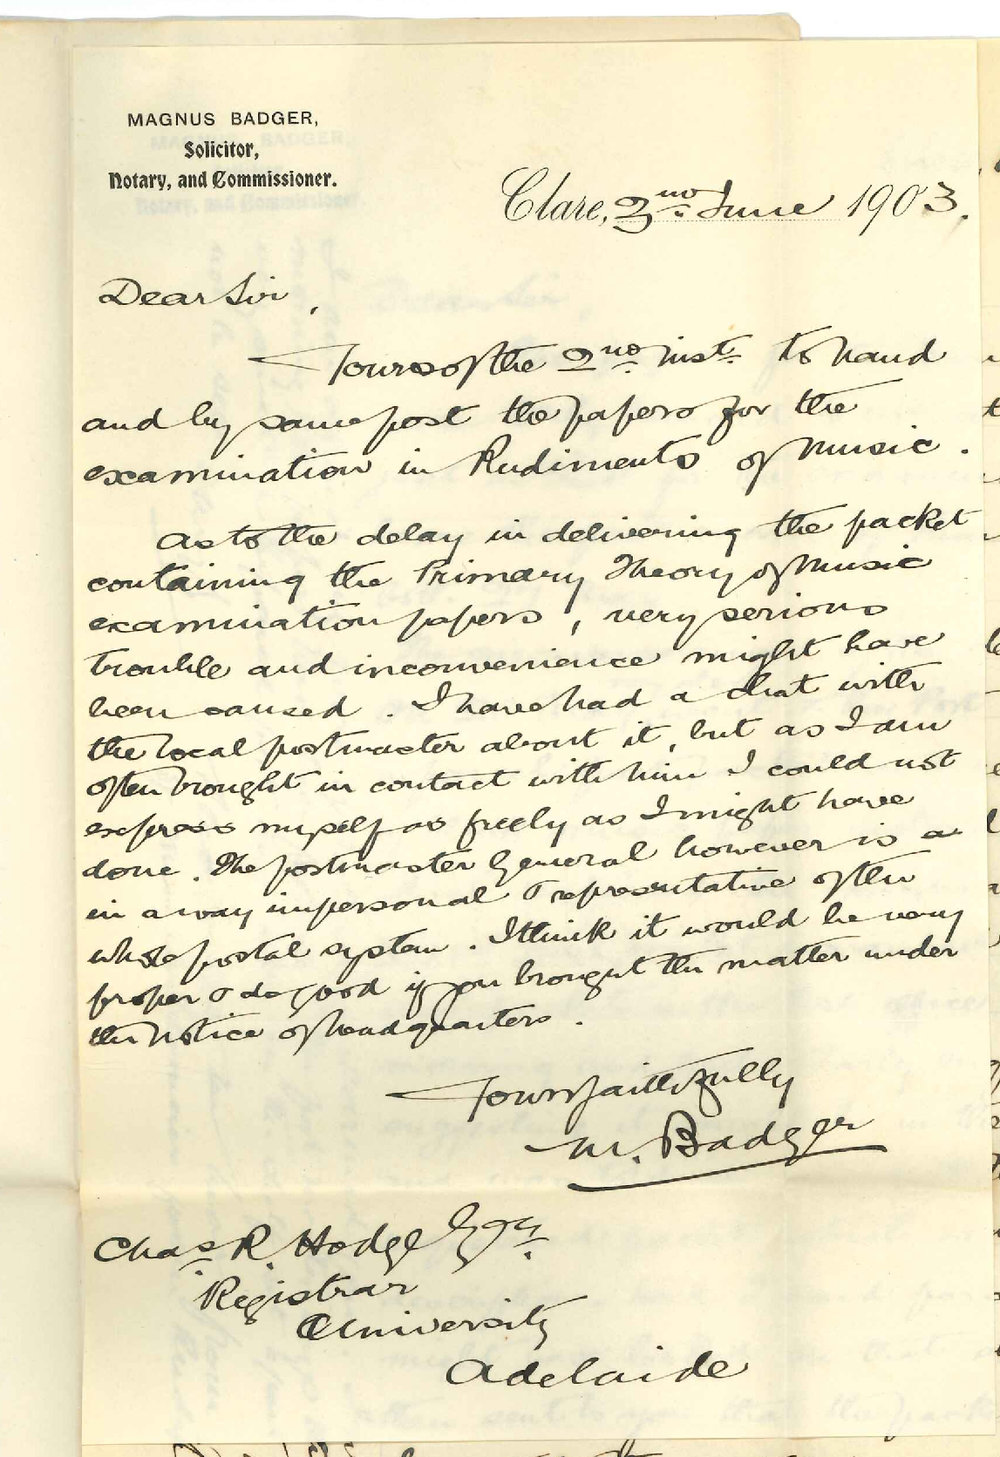 MAGNUS BADGER,
Solicitor,
Notary, and Commissioner.
Clare, 3nd June 1903.
Dear Sir,
Yours of the 2nd inst. to hand
and by same post the papers for the
examination in Rudiments of Music.
As to the delay in delivering the packet
containing the Primary Theory of Music
examination papers, very serious
trouble and inconvenience might have
been caused. I have had a chat with
the local postmaster about it, but as I am
often brought in contact with him I could not
express myself as freely as I might have
done. The postmaster General however is
in a way impersonal & representative of the
whole postal system. I think it would be very
proper & do good if you brought the matter under
the notice of headquarters.
Yours faithfully
M. Badger
Chas. R. Hodge Esqr.
Registrar
University
Adelaide